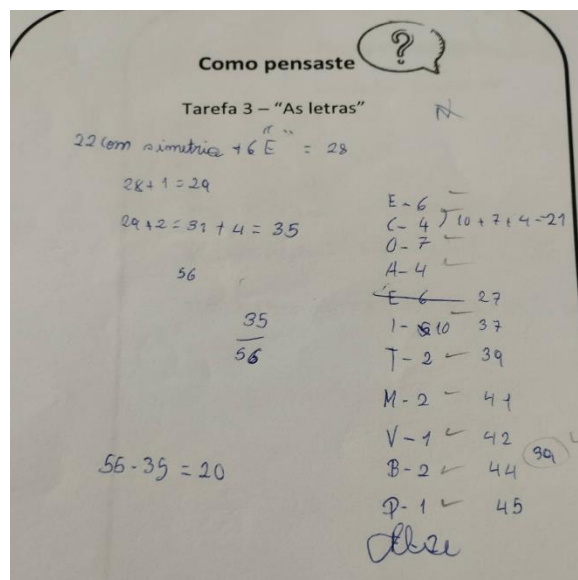 ?
Como pensaste
Tarefa 3 – “As letras”
22 com simetria + 6 "E" = 28
28 + 1 = 29
29 + 2 = 31 + 4 = 35
56
35
56
55 - 35 = 20
E - 6
C - 4 ) 10 + 7 + 4 = 21
O - 7
A - 4
E 6 27
I - 10 37
T - 2 39
M - 2 41
V - 1 42
39
B - 2 44
P - 1 45